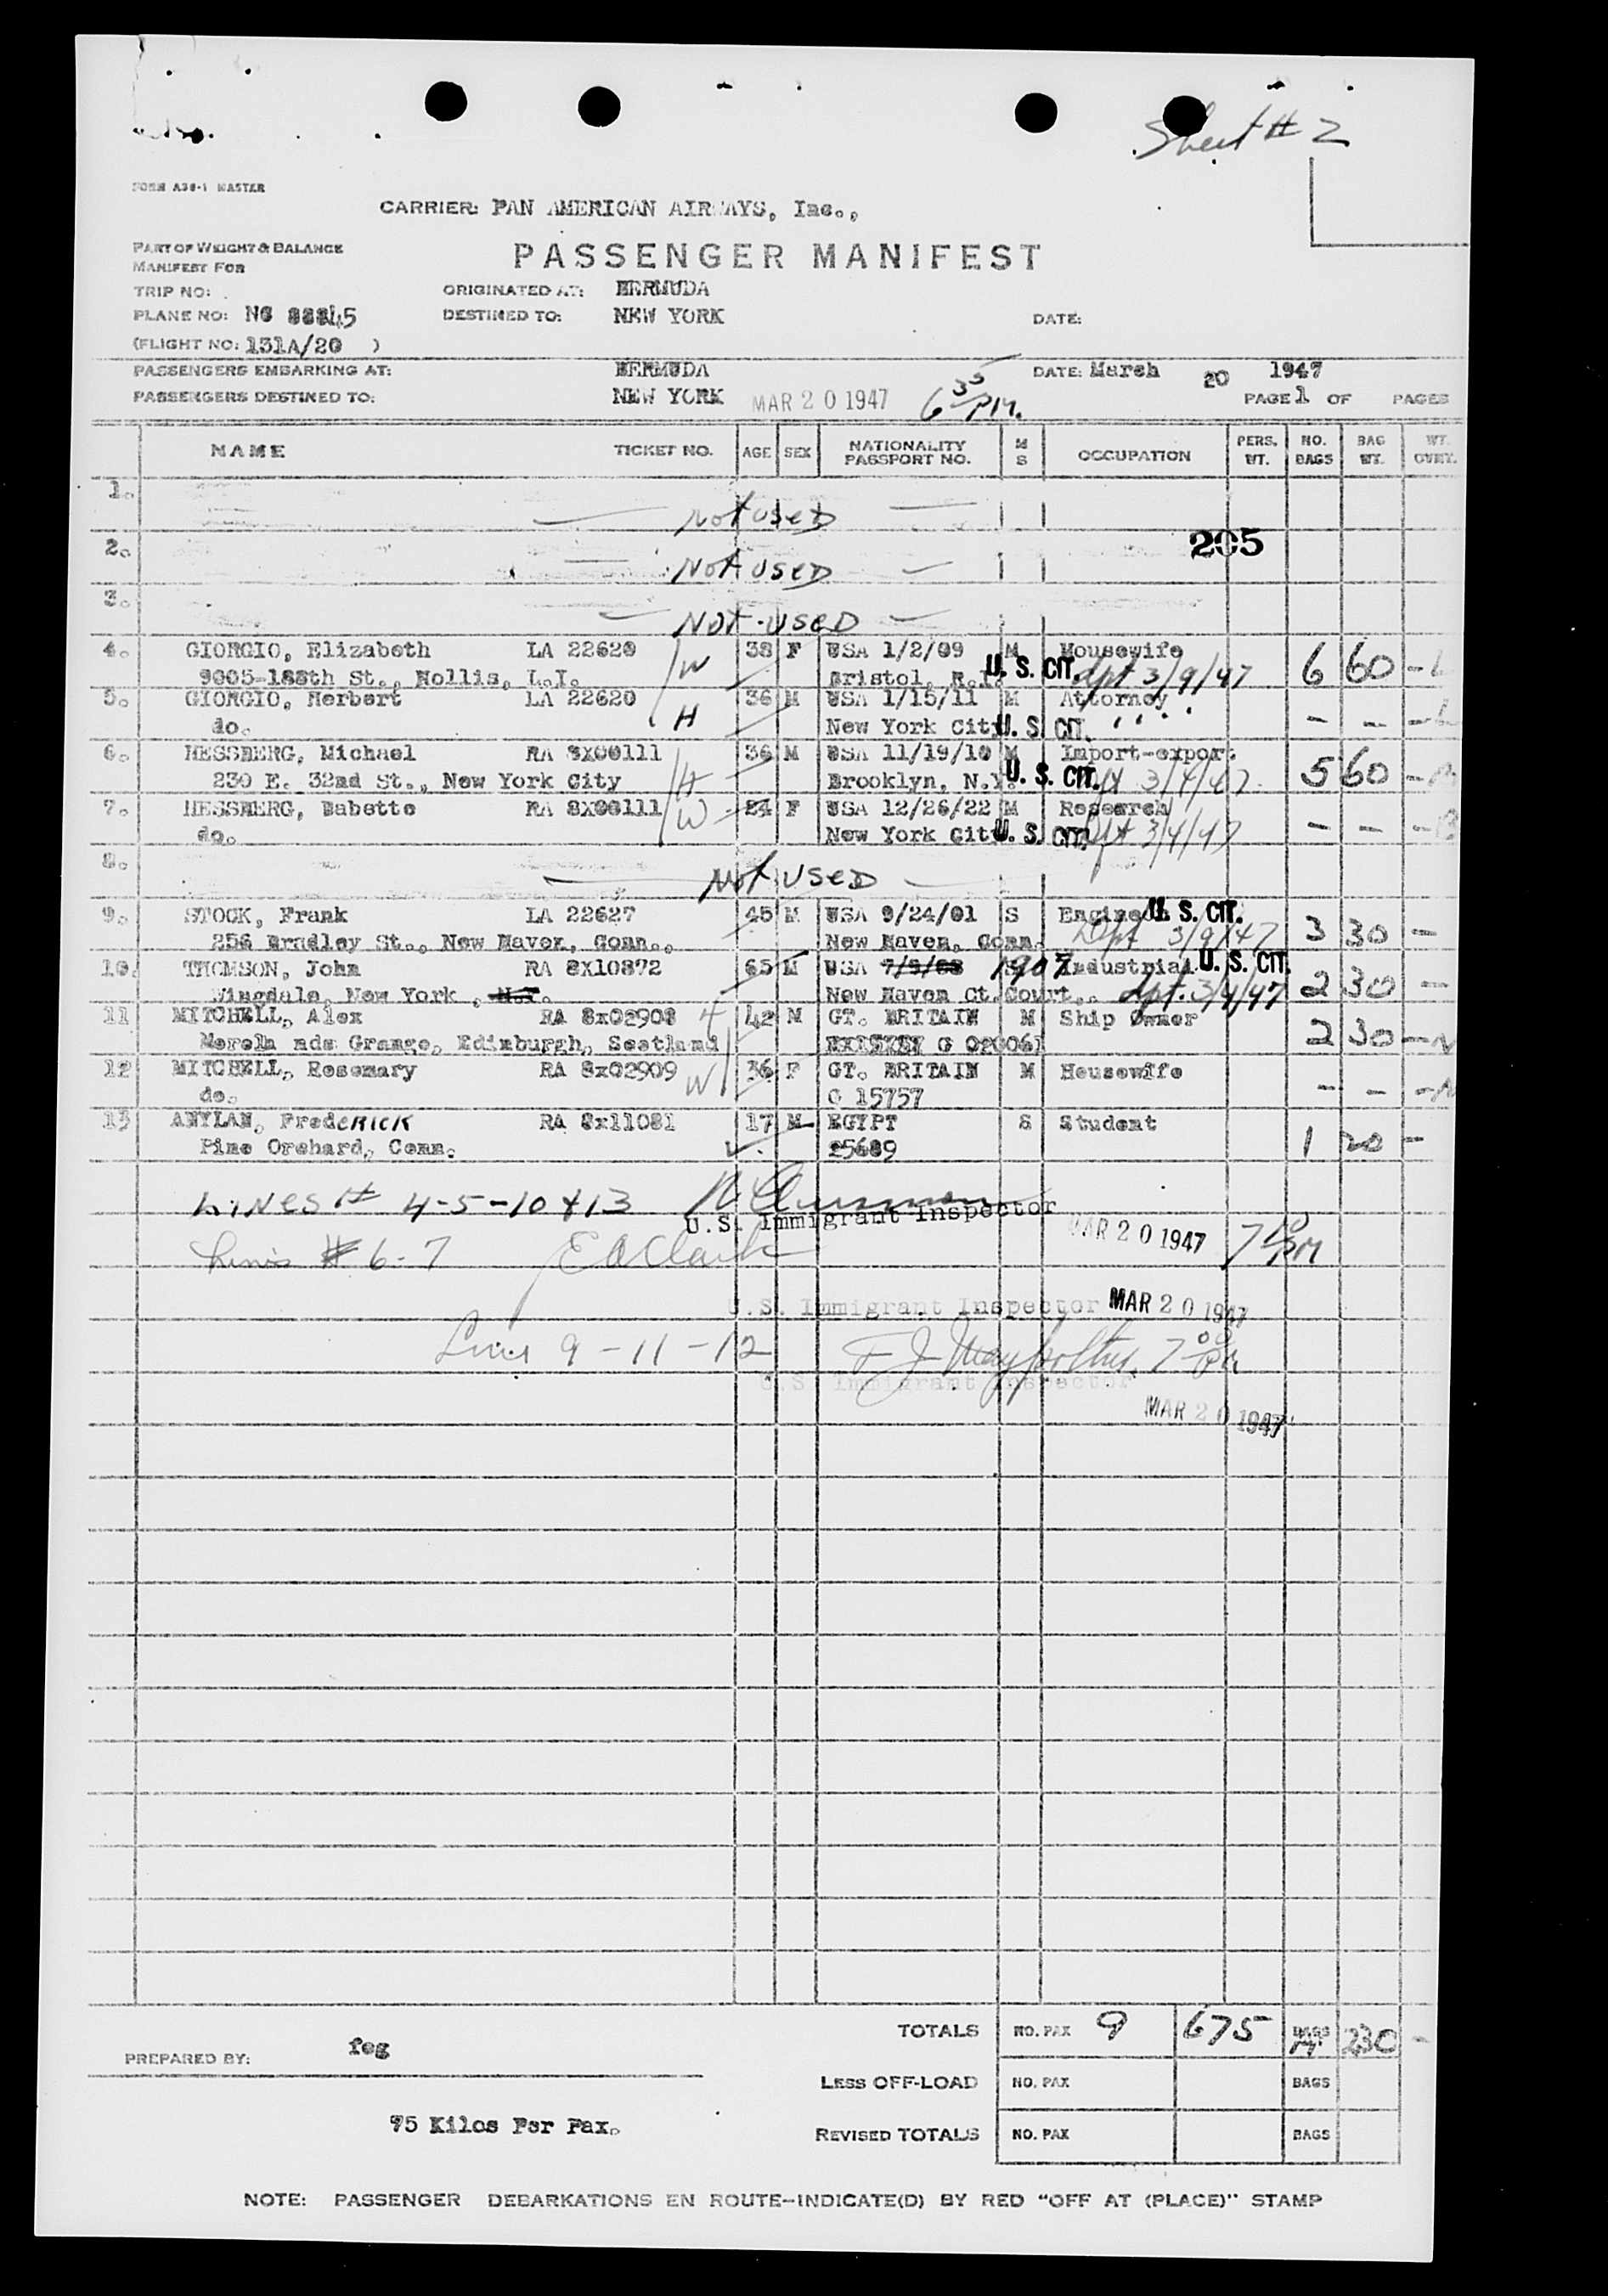 Sheet # 2
FORM A30-1 MASTER
CARRIER: PAN AMERICAN AIRWAYS, Inc.,
PART OF WEIGHT & BALANCE
MANIFEST FOR
PASSENGER MANIFEST
TRIP NO: ORIGINATED AT: BERMUDA
PLANE NO: NC 88845 DESTINED TO: NEW YORK DATE:
(FLIGHT NO: 131A/20 )
PASSENGERS EMBARKING AT: BERMUDA DATE: March 20 1947
PASSENGERS DESTINED TO: NEW YORK MAR 20 1947 6 35 PM. PAGE 1 OF PAGES
NAME TICKET NO. AGE SEX NATIONALITY PASSPORT NO. M S OCCUPATION PERS. WT. NO. BAGS BAG WT. WT. OVRT.
1. Not used
2. Not used 205
3. Not used
4. GIORGIO, Elizabeth LA 22620 W 38 F USA 1/2/09 M Housewife 6 60 -
9005-188th St., Hollis, L.I. Bristol, R.I. U. S. CIT. dpt 3/9/47
5. GIORGIO, Herbert LA 22620 H 36 M USA 1/15/11 M Attorney - - -
do. New York City U. S. CIT. " " "
6. HESSBERG, Michael RA 8X00111 H 36 M USA 11/19/10 M Import-export 5 60 -
230 E. 32nd St., New York City Brooklyn, N.Y. U. S. CIT. dpt 3/4/47
7. HESSBERG, Babette RA 8X00111 W 24 F USA 12/26/22 M Research - - -
do. New York City U. S. CIT. dpt 3/4/47
8. Not used
9. STOCK, Frank LA 22627 45 M USA 9/24/01 S Engineer U. S. CIT. 3 30 -
256 Bradley St., New Haven, Conn., New Haven, Conn. Dpt 3/9/47
10. THOMSON, John RA 8X10872 65 M USA 1907 Industrial U. S. CIT. 2 30 -
Wingdale, New York , N.Y. New Haven Ct. Court,. dpt. 3/4/47
11 MITCHELL, Alex RA 8x02908 42 M GT. BRITAIN M Ship Owner 2 30 -
Grange, Edinburgh, Scotland
12 MITCHELL, Rosemary RA 8x02909 W 36 F GT. BRITAIN M Housewife - - -
do. C 15757
13 ANYLAN, Frederick RA 8x11081 17 M EGYPT S Student 1 20 -
Pine Orchard, Conn. 25689
Lines # 4-5-10 & 13
U.S. Immigrant Inspector MAR 20 1947 7 10 PM
Lines # 6-7 E A Clark
U.S. Immigrant Inspector MAR 20 1947
Lines 9-11-12 7 00 PM
U.S. Immigrant Inspector
MAR 20 1947
TOTALS NO. PAX 9 675 BAGS 230 -
PREPARED BY: feg
LESS OFF-LOAD NO. PAX BAGS
75 Kilos Per Pax.
REVISED TOTALS NO. PAX BAGS
NOTE: PASSENGER DEBARKATIONS EN ROUTE-INDICATE(D) BY RED "OFF AT (PLACE)" STAMP